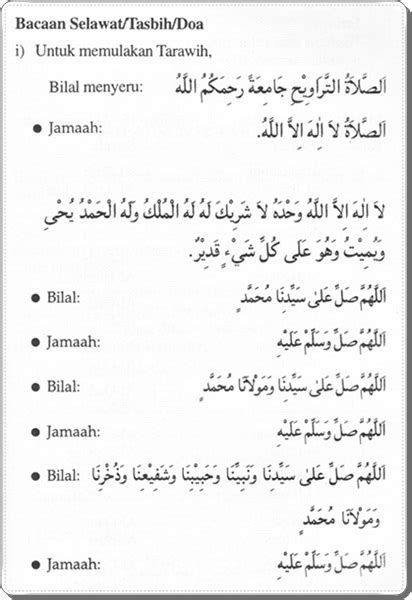 Bacaan Selawat/Tasbih/Doa
i) Untuk memulakan Tarawih,
Bilal menyeru: اَلصَّلاَةُ التَّرَاوِيْحِ جَامِعَةً رَحِمَكُمُ اللَّهُ
● Jamaah: اَلصَّلاَةُ لاَ اِلٰهَ اِلاَّ اللَّهُ.
لاَ اِلٰهَ اِلاَّ اللَّهُ وَحْدَهُ لاَ شَرِيْكَ لَهُ لَهُ الْمُلْكُ وَلَهُ الْحَمْدُ يُحْيِ
وَيُمِيْتُ وَهُوَ عَلَى كُلِّ شَيْءٍ قَدِيْرٌ.
● Bilal: اَللَّهُمَّ صَلِّ عَلَىٰ سَيِّدِنَا مُحَمَّدٍ
● Jamaah: اَللَّهُمَّ صَلِّ وَسَلِّمْ عَلَيْهِ
● Bilal: اَللَّهُمَّ صَلِّ عَلَىٰ سَيِّدِنَا وَمَوْلاَنَا مُحَمَّدٍ
● Jamaah: اَللَّهُمَّ صَلِّ وَسَلِّمْ عَلَيْهِ
● Bilal: اَللَّهُمَّ صَلِّ عَلَىٰ سَيِّدِنَا وَنَبِيِّنَا وَحَبِيْبِنَا وَشَفِيْعِنَا وَذُخْرِنَا
وَمَوْلاَنَا مُحَمَّدٍ
● Jamaah: اَللَّهُمَّ صَلِّ وَسَلِّمْ عَلَيْهِ